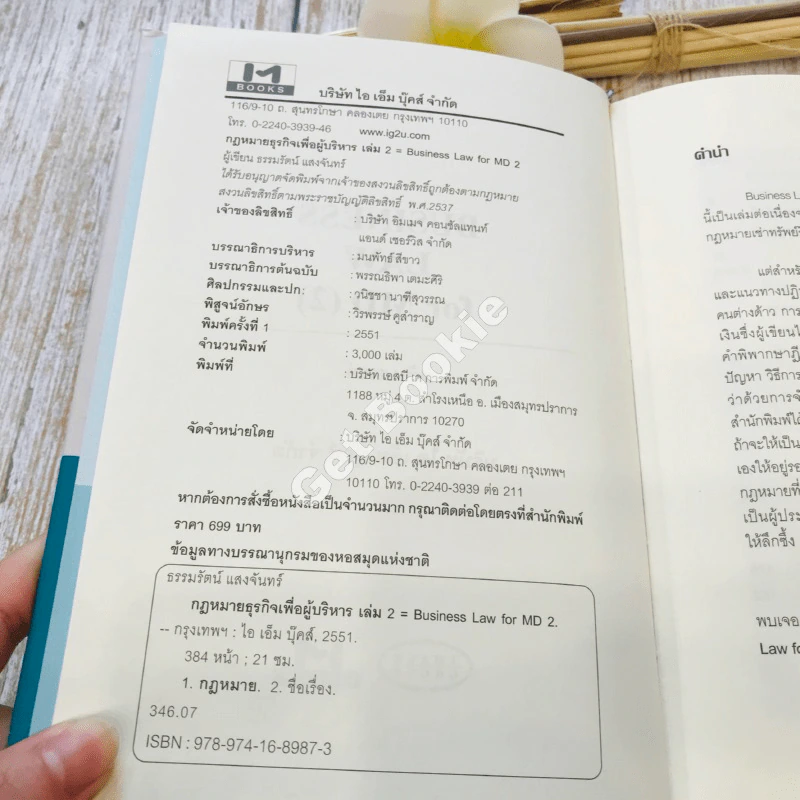 IM
BOOKS
บริษัท ไอ เอ็ม บุ๊คส์ จำกัด
116/9-10 ถ. สุนทรโกษา คลองเตย กรุงเทพฯ 10110
โทร. 0-2240-3939-46 www.ig2u.com
กฎหมายธุรกิจเพื่อผู้บริหาร เล่ม 2 = Business Law for MD 2
ผู้เขียน ธรรมรัตน์ แสงจันทร์
ได้รับอนุญาตจัดพิมพ์จากเจ้าของสงวนลิขสิทธิ์ถูกต้องตามกฎหมาย
สงวนลิขสิทธิ์ตามพระราชบัญญัติลิขสิทธิ์ พ.ศ.2537
เจ้าของลิขสิทธิ์ : บริษัท อิมเมจ คอนซัลแทนท์
แอนด์ เซอร์วิส จำกัด
บรรณาธิการบริหาร : มนพัทธ์ สีขาว
บรรณาธิการต้นฉบับ : พรรณธิพา เดมะศิริ
ศิลปกรรมและปก: : วนิชชา นาฑีสุวรรณ
พิสูจน์อักษร : วิรพรรษ์ คูสำราญ
พิมพ์ครั้งที่ 1 : 2551
จำนวนพิมพ์ : 3,000 เล่ม
พิมพ์ที่ : บริษัท เอสบี เค การพิมพ์ จำกัด
1188 หมู่ 4 ต. สำโรงเหนือ อ. เมืองสมุทรปราการ
จ. สมุทรปราการ 10270
จัดจำหน่ายโดย : บริษัท ไอ เอ็ม บุ๊คส์ จำกัด
116/9-10 ถ. สุนทรโกษา คลองเตย กรุงเทพฯ
10110 โทร. 0-2240-3939 ต่อ 211
หากต้องการสั่งซื้อหนังสือเป็นจำนวนมาก กรุณาติดต่อโดยตรงที่สำนักพิมพ์
ราคา 699 บาท
ข้อมูลทางบรรณานุกรมของหอสมุดแห่งชาติ
ธรรมรัตน์ แสงจันทร์
กฎหมายธุรกิจเพื่อผู้บริหาร เล่ม 2 = Business Law for MD 2.
-- กรุงเทพฯ : ไอ เอ็ม บุ๊คส์, 2551.
384 หน้า ; 21 ซม.
1. กฎหมาย. 2. ชื่อเรื่อง.
346.07
ISBN : 978-974-16-8987-3
Get Bookie
คำนำ
Business L
นี้เป็นเล่มต่อเนื่อง
กฎหมายเช่าทรัพย์
แต่สำหรั
และแนวทางปฏิ
คนต่างด้าว การ
เงินซึ่งผู้เขียนไ
คำพิพากษาฎี
ปัญหา วิธีการ
ว่าด้วยการจั
สำนักพิมพ์ได้
ถ้าจะให้เป็น
เองให้อยู่รอ
กฎหมายที่
เป็นผู้ประ
ให้ลึกซึ้ง
พบเจอ
Law fo